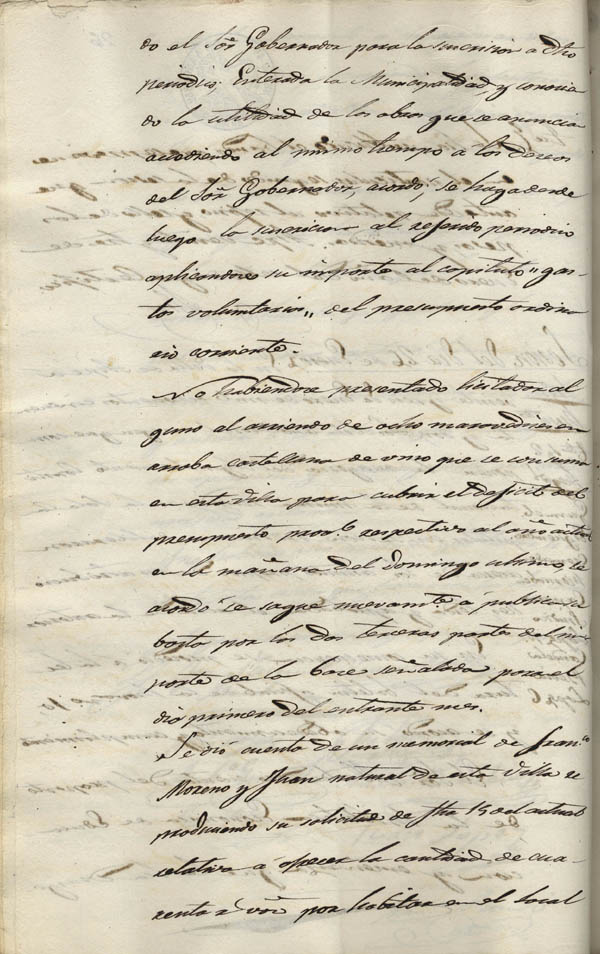 do el Sor. Gobernador para la suscricion a dho
periodico. Enterada la Municipalidad, y conocien
do la utilidad de los obras que se anuncia
accediendo al mismo tiempo a los deseos
del Sor. Gobernador, acordó; se haga desde
luego la suscricion al referido periodico
aplicandose su importe al capitulo "gas-
tos voluntarios" del presupuesto ordina
rio corriente.
No habiendose presentado licitador al
guno al arriendo de ocho maravedises en
arroba castellana de vino que se consuma
en esta villa para cubrir el deficit del
presupuesto prov.l respectivo al año actual
en la mañana del Domingo ultimo, se
acordó se saque nuevamte. a publica su
basta por las dos terceras partes del im
porte de la base señalada para el
dia primero del entrante mes.
Se dió cuenta de un memorial de Franco.
Moreno y Juan natural de esta Villa re
produciendo su solicitud de fha 15 del actual
relativa a ofrecer la cantidad de cua
renta r.s von. por habitar en el local